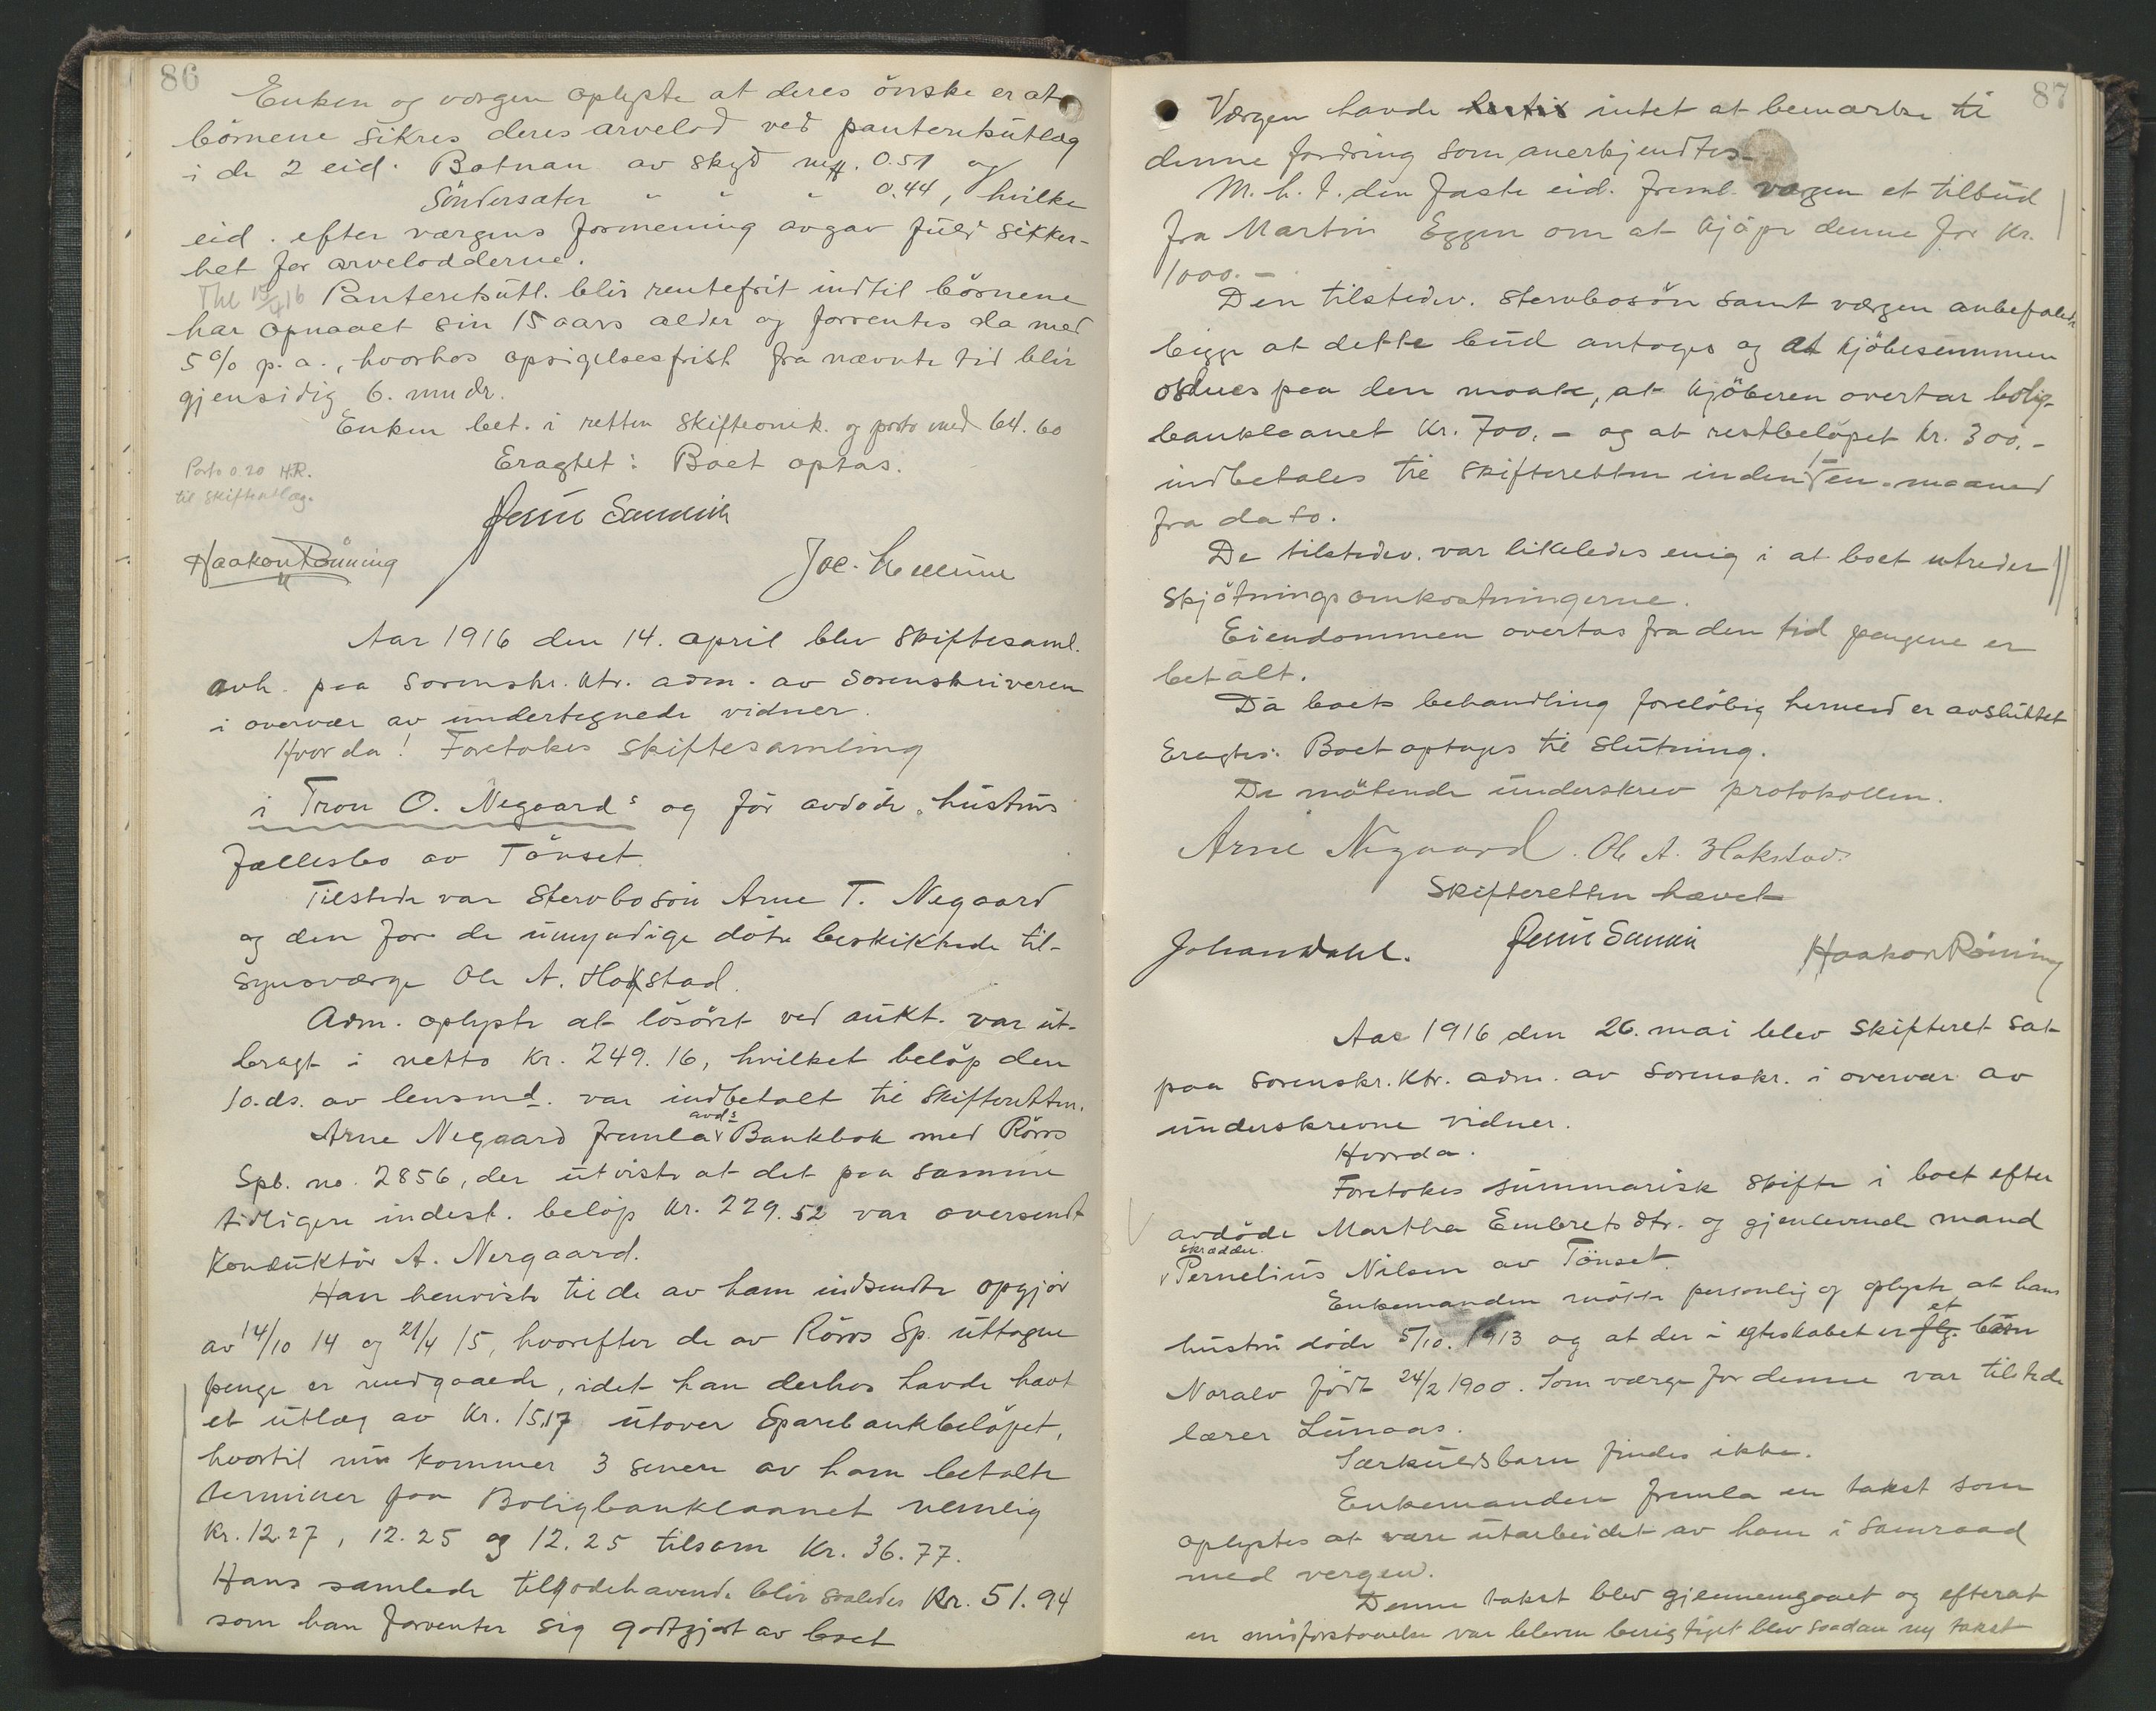 86
Enken og vergen oplyste at deres önske er at
börnene sikres deres arvelod ved panteretsutlæg
i de 2 eid. Botnan av skyld mk. 0.51 og
Söndersæter " " " 0.44, hvilke
eid. efter værgens formening avgav fuld sikker-
het for arvelodderne.
Thl 15/4 16 Panteretsutl. blir rentefrit indtil börnene
har opnaaet sin 15 aars alder og forrentes da med
5 % p. a., hvorhos opsigelsesfrist fra nævnte tid blir
gjensidig 6. mndr.
Enken bet. i retten skifteomk. og porto med 64.60
Porto 0.20 H.R.
til skifteutlæg.
Eragtet: Boet optas.
Haakon Rönning
Aar 1916 den 14. april blev skiftesaml.
avh. paa sorenskr. ktr. adm. av sorenskriveren
i overvær av undertegnede vidner.
Hvorda! Foretokes skiftesamling
i Tron O. Negaards og för avdöde hustrus
fællesbo av Tönset.
Tilstede var stervbosön Arne T. Negaard
og den for de umyndige dötre beskikkede til-
synsværge Ole A. Hokstad.
Adm. oplyste at lösöret ved aukt. var ut-
bragt i netto kr. 249.16, hvilket belöp den
10. ds. av lensmd. var indbetalt til skifteretten.
Arne Negaard fremla avds Bankbok med Röros
Spb. no. 2856, der utviste at det paa samme
tidligere indest. belöp kr. 229.52 var oversendt
Konduktör A. Nergaard.
Han henviste til de av ham indsendte opgjör
av 14/10 14 og 21/4 15, hvorefter de av Röros Sp. uttagne
penge er medgaaede, idet han derhos havde havt
et utlæg av kr. 15.17 utover Sparebankbelöpet,
hvortil nu kommer 3 senere av ham betalte
terminer paa Boligbanklaanet nemlig
kr. 12.27, 12.25 og 12.25 tilsam kr. 36.77.
Hans samlede tilgodehavende blir saaledes kr. 51.94
som han forventer sig godtgjort av boet
87
Værgen havde intet at bemærke til
denne fordring som anerkjendtes.
M. h. t. den faste eid. freml. værgen et tilbud
fra Martin Eggen om at kjöpe denne for kr.
1000.-
Den tilstedev. stervbosön samt værgen anbefalede
begge at dette bud antoges og at kjöbesummen
ordnes paa den maate, at kjöberen overtar bolig-
banklaanet kr. 700.- og at restbelöpet kr. 300.-
indbetales til skifteretten inden en maaned
fra dato.
De tilstedev. var likeledes enig i at boet utreder
skjötningsomkostningerne.
Eiendommen overtas fra den tid pengene er
betalt.
Da boets behandling forelöbig hermed er avsluttet
Eragtes: Boet optages til slutning.
De mötende underskrev protokollen.
Arne Negaard. Ole A. Hokstad.
Skifteretten hævet
Johan Dahl.
Haakon Röning
Aar 1916 den 26. mai blev skifteret sat
paa sorenskr. ktr. adm. av sorenskr. i overvær av
underskrevne vidner.
Hvorda.
Foretokes summarisk skifte i boet efter
avdöde Martha Embretsdtr. og gjenlevende mand
skrædder
Pernelius Nilsen av Tönset.
Enkemanden mötte personlig og oplyste at hans
hustru döde 5/10. 1913 og at der i egteskabet er flg. et barn
Noralv födt 24/2 1900. Som værge for denne var tilstede
lærer Lunaas.
Særkuldsbarn findes ikke.
Enkemanden fremla en takst som
oplystes at være utarbeidet av ham i samraad
med vergen.
Denne takst blev gjennemgaaet og efterat
en misforstaaelse var bleven berigtiget blev saadan ny takst